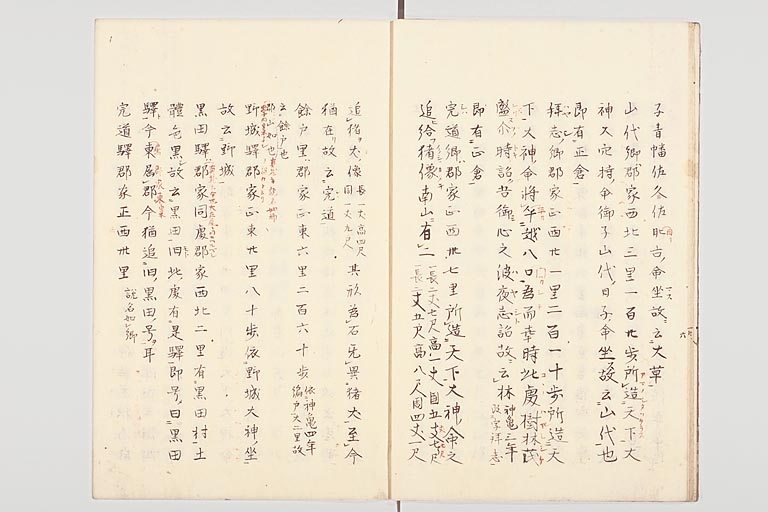 子青幡佐久佐日古命坐故云大草
山代郷郡家西北三里一百廿歩所造天下大
神大穴持命御子山代日子命坐故云山代也
即有正倉
拝志郷郡家正西廿一里二百一十歩所造天
下大神命將平越八口為而幸時此處樹林茂
盛尒時詔吾御心之波夜志詔故云林 神亀三年改字拝志
即有正倉
完道郷郡家正西卅七里所造天下大神命之
追給猪像南山有二 一長二丈七尺高一丈周五丈七尺 一長二丈五尺高八尺周四丈一尺
追猪犬像 長一丈高四尺周一丈九尺 其形為石无異猪犬至今
猶在故云完道
餘戸里郡家正東六里二百六十歩 依神亀四年編戸天二里故
云餘戸也
郡山如也
野城驛郡家正東廿里八十歩依野城大神坐
故云野城
黒田驛郡家同處郡家西北二里有黒田村土
體色黒故云黒田旧此處有是驛即号曰黒田
驛今東属郡今猶追旧黒田号耳
完道驛郡家正西卅里 説名如郷